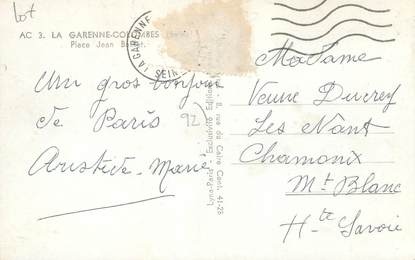 Lot
AC 3. LA GARENNE-COLOMBES
Place Jean
LA GARENNE
SEINE
Un gros bonjour
de Paris
Aristide-Marie
92
8, rue du Caire Cent. 41-28
Madame
Veuve Ducrey
Les Nants
Chamonix
Mt Blanc
Hte Savoie